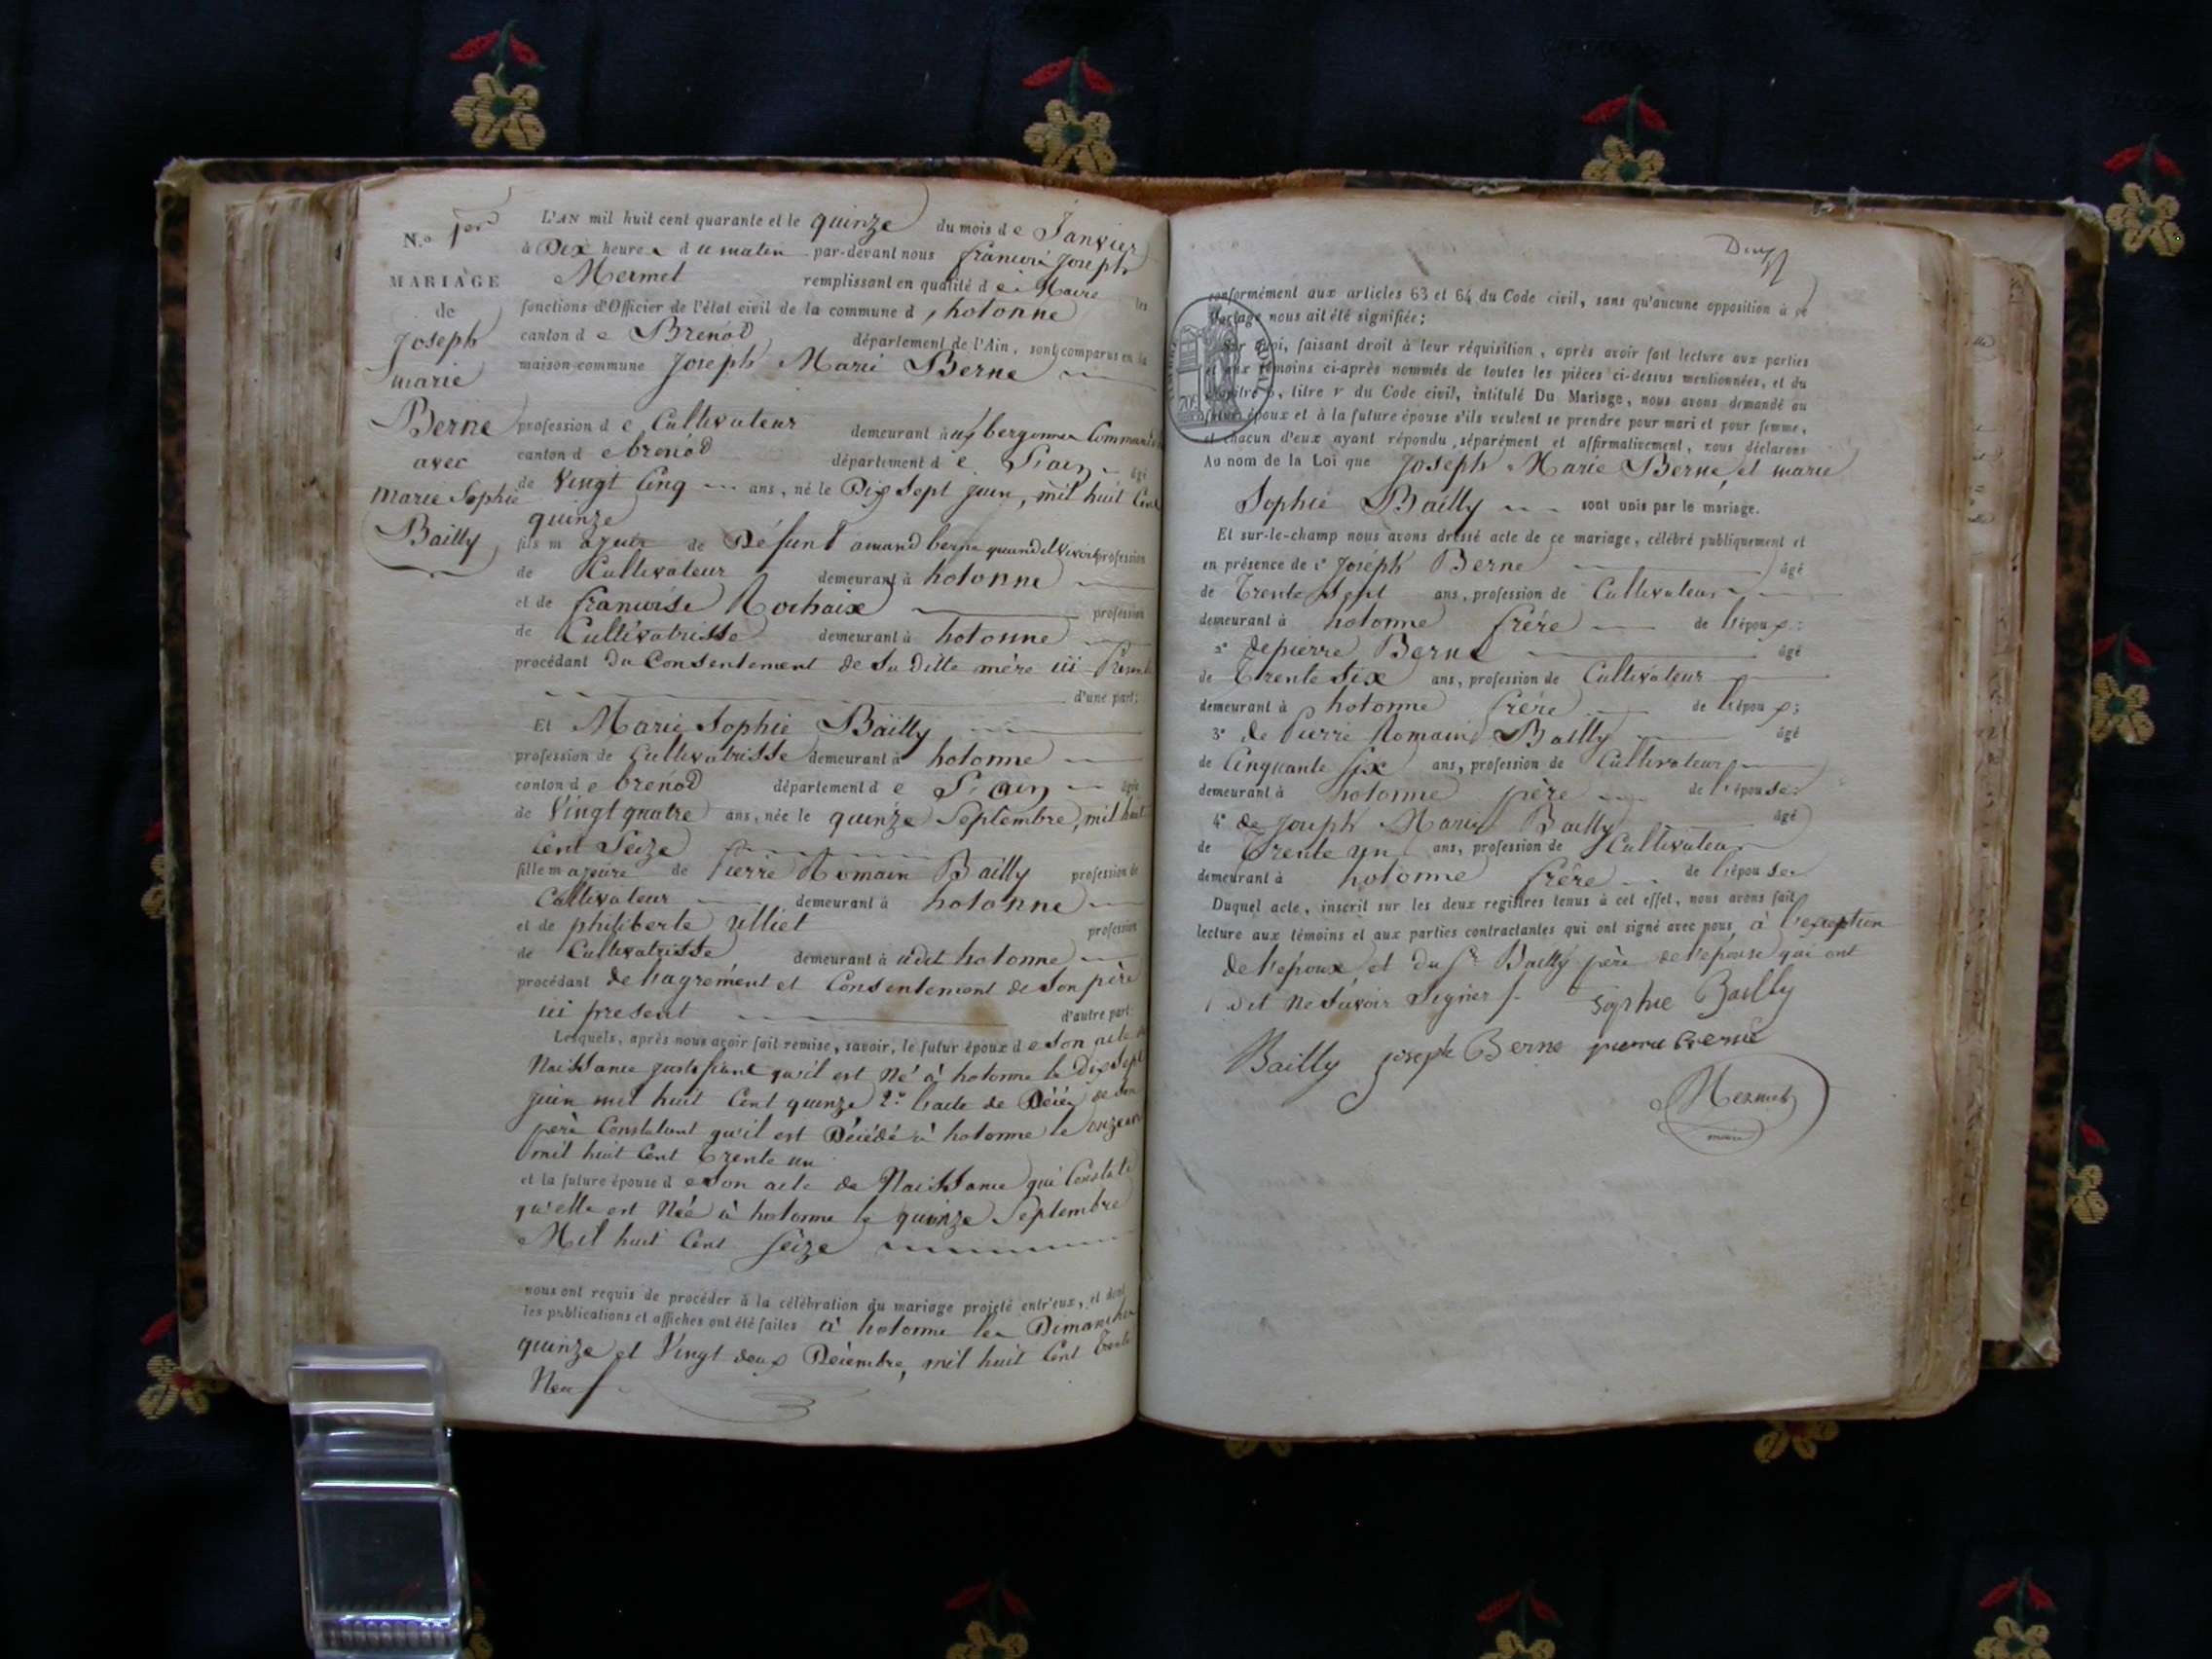 N.o 1er
MARIAGE
de
Joseph
marie
Berne
avec
Marie Sophie
Bailly
L'AN mil huit cent quarante et le quinze du mois de Janvier
à Dix heures du matin par-devant nous francois Joseph
Mermet remplissant en qualité de Maire les
fonctions d'Officier de l'état civil de la commune d'hotonne
canton de Brenod département de l'Ain, sont comparus en la
maison commune Joseph Marie Berne
profession de Cultivateur demeurant à
canton de brenod département de L'ain âgé
de Vingt Cinq ans, né le Dix Sept Juin, mil huit Cent
quinze
fils majeur de Défunt amand berne quand il vivoit profession
de Cultivateur demeurant à hotonne
et de francoise Rochaix profession
de Cultivatrisse demeurant à hotonne
procédant du Consentement de Sa ditte mère ici Présente
d'une part;
Et Marie Sophie Bailly
profession de Cultivatrisse demeurant à hotonne
canton de brenod département de L'ain âgée
de Vingt quatre ans, née le quinze Septembre, mil huit
Cent Seize
fille majeure de Pierre Romain Bailly profession de
Cultivateur demeurant à hotonne
et de philiberte Ulliet profession
de Cultivatrisse demeurant à udit hotonne
procédant de L'agrément et Consentement de Son père
ici présent d'autre part.
Lesquels, après nous avoir fait remise, savoir, le futur époux de Son acte de
Naissance justifiant qu'il est Né à hotonne le Dix Sept
Juin mil huit Cent quinze 2.o L'acte de Décès de Son
père Constatant qu'il est Décédé à hotonne le
mil huit Cent trente un
et la future épouse de Son acte de Naissance qui Constate
qu'elle est Née à hotonne le quinze Septembre
Mil huit Cent Seize
nous ont requis de procéder à la célébration du mariage projeté entr'eux, et dont
les publications et affiches ont été faites à hotonne les Dimanches
quinze et Vingt deux Décembre, mil huit Cent trente
Neuf
Deux
conformément aux articles 63 et 64 du Code civil, sans qu'aucune opposition à ce
mariage nous ait été signifiée;
Sur quoi, faisant droit à leur réquisition, après avoir fait lecture aux parties
et aux témoins ci-après nommés de toutes les pièces ci-dessus mentionnées, et du
chapitre 6, titre V du Code civil, intitulé Du Mariage, nous avons demandé au
futur époux et à la future épouse s'ils veulent se prendre pour mari et pour femme,
et chacun d'eux ayant répondu séparément et affirmativement, nous déclarons
Au nom de la Loi que Joseph Marie Berne, et marie
Sophie Bailly sont unis par le mariage.
Et sur-le-champ nous avons dressé acte de ce mariage, célébré publiquement et
en présence de 1.o Joseph Berne âgé
de Trente Sept ans, profession de Cultivateur
demeurant à hotonne frère de l'époux;
2.o de pierre Berne âgé
de Trente Six ans, profession de Cultivateur
demeurant à hotonne frère de l'époux;
3.o de Pierre Romain Bailly âgé
de Cinquante Six ans, profession de Cultivateur
demeurant à hotonne père de l'épouse
4.o de Joseph Marie Bailly âgé
de Trente un ans, profession de Cultivateur
demeurant à hotonne frère de l'épouse
Duquel acte, inscrit sur les deux registres tenus à cet effet, nous avons fait
lecture aux témoins et aux parties contractantes qui ont signé avec nous, à l'exception
de l'époux et du Sr Bailly père de l'épouse qui ont
dit ne Savoir Signer Sophie Bailly
Bailly joseph Berne pierre Berne
Mermet
maire